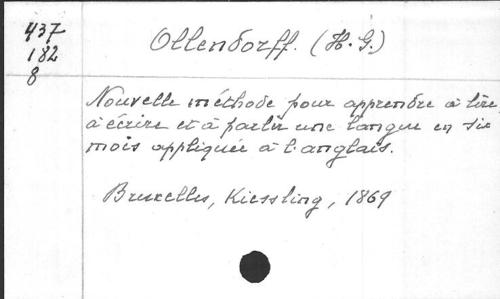 437
182
8
Ollendorff. (H. G.)
Nouvelle méthode pour apprendre à lire,
à écrire et à parler une langue en six
mois appliquée à l'anglais.
Bruxelles, Kiessling, 1869